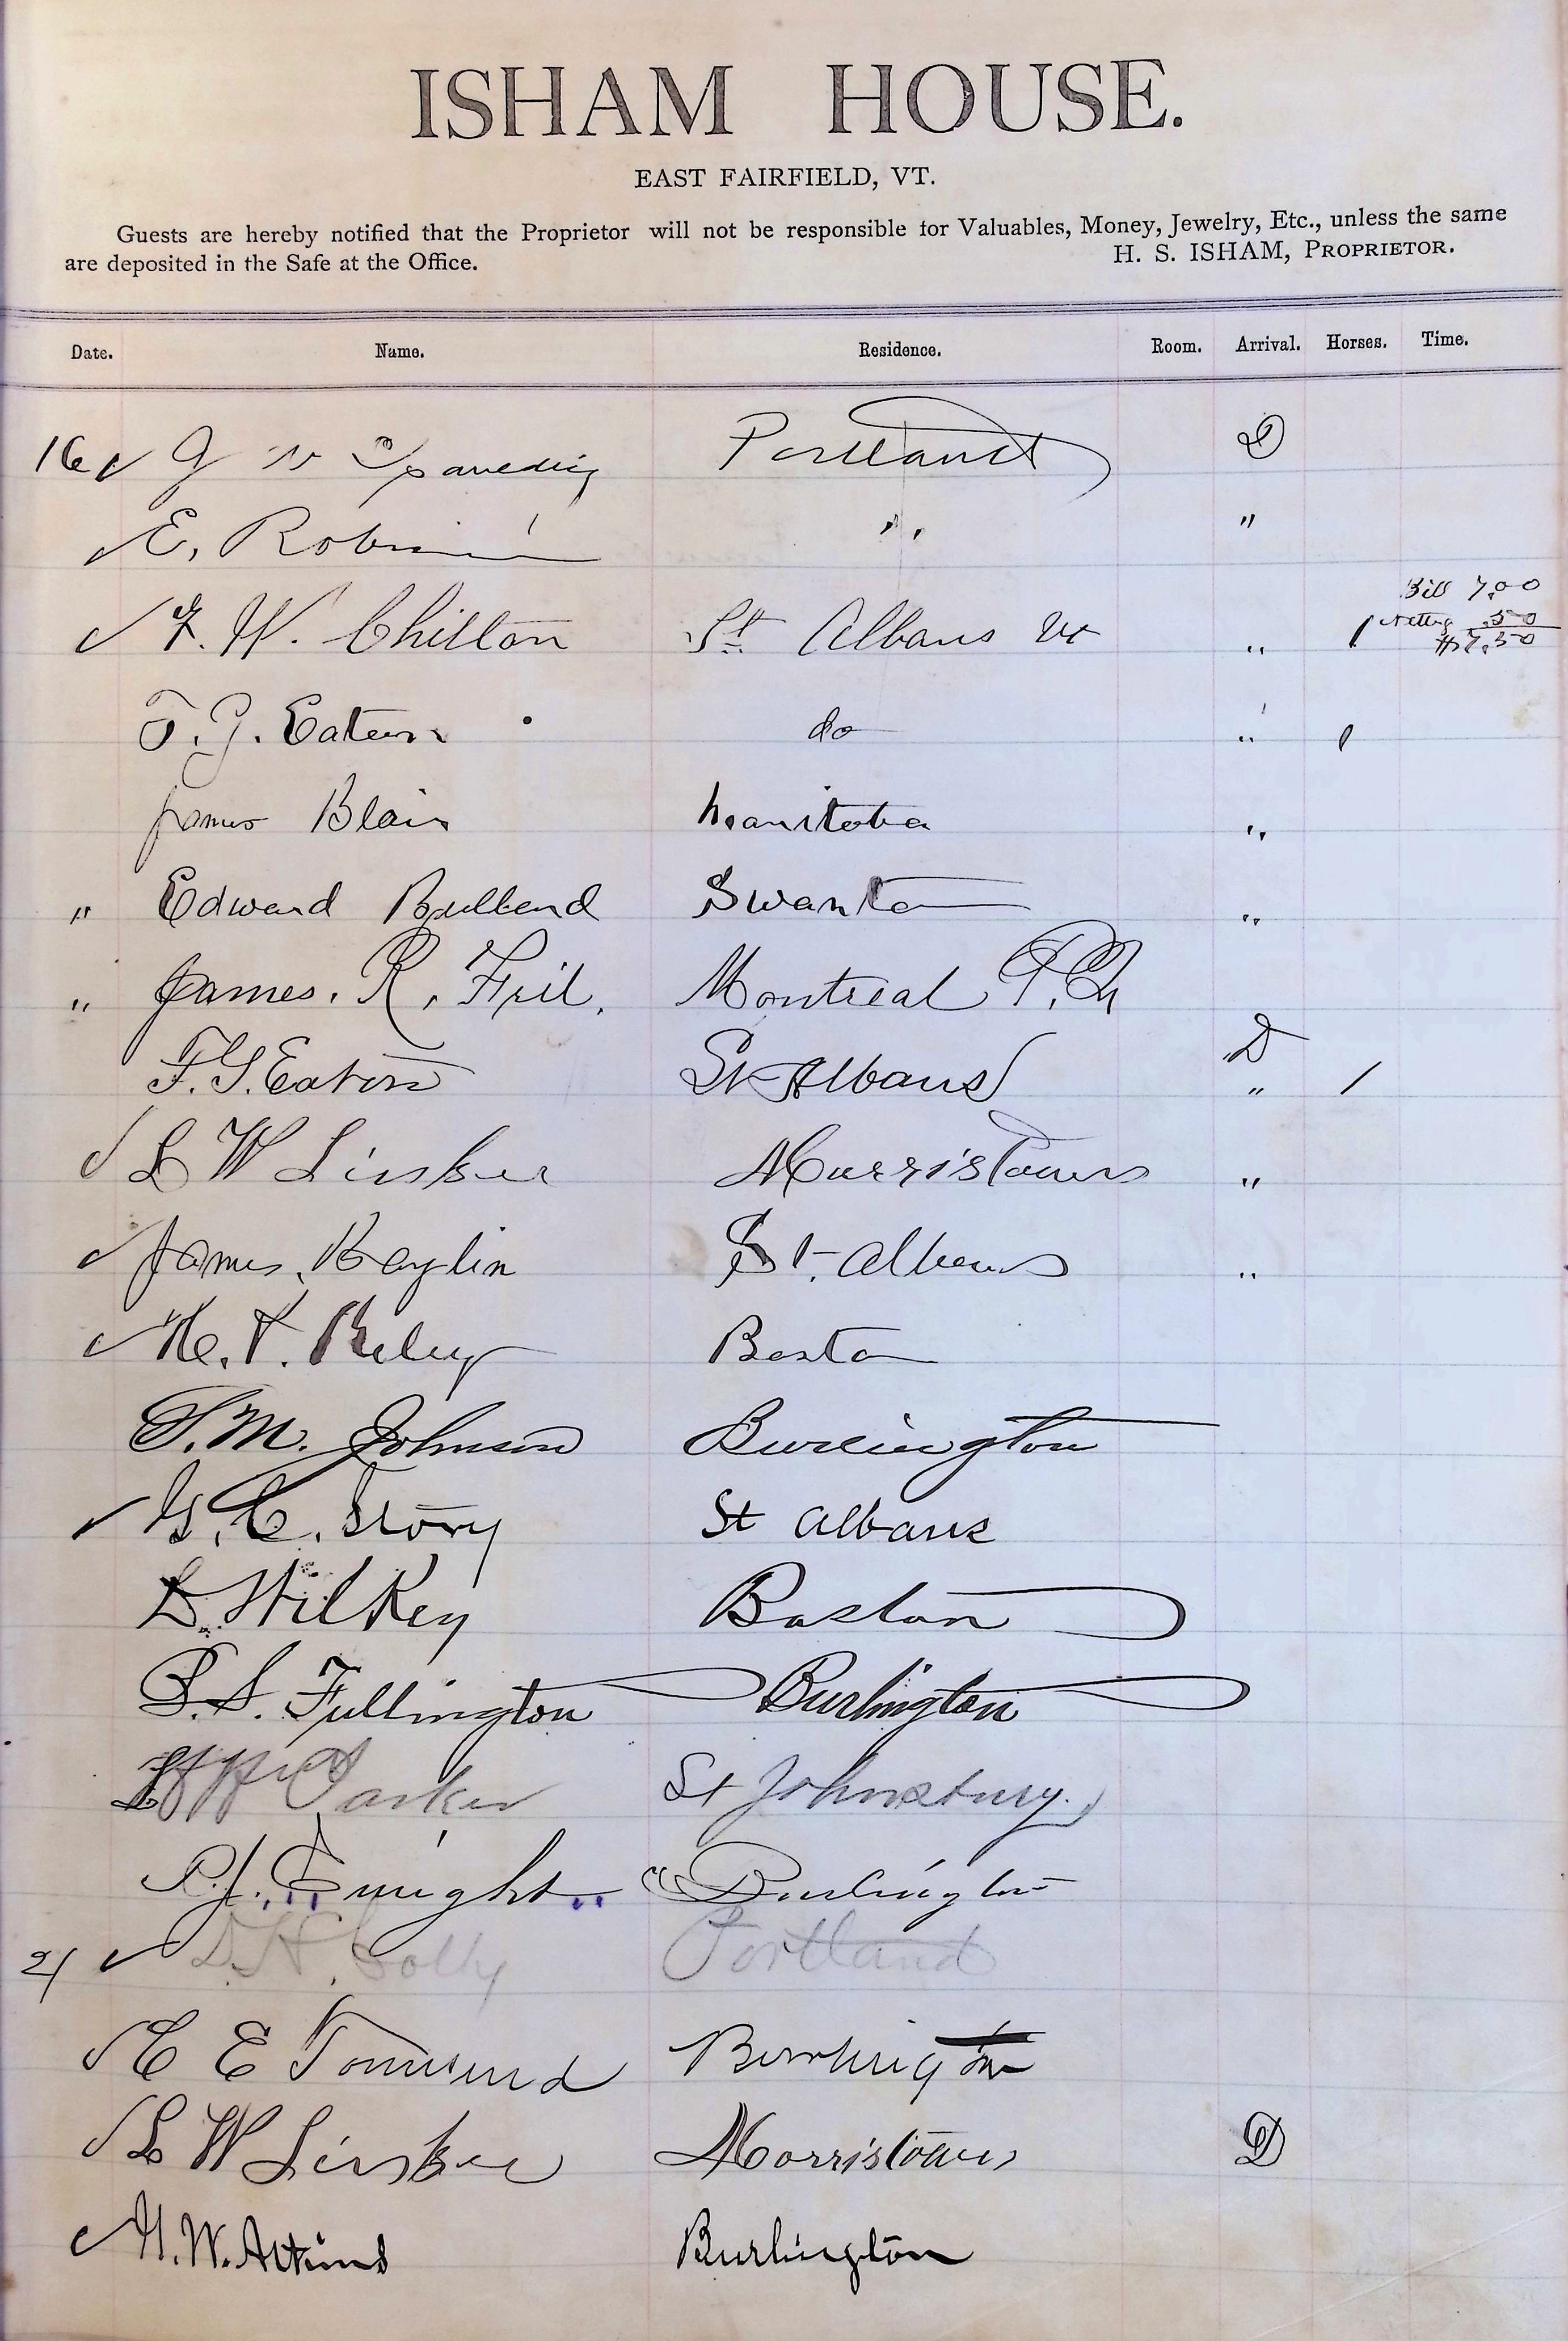 ISHAM HOUSE.
EAST FAIRFIELD, VT.
Guests are hereby notified that the Proprietor will not be responsible for Valuables, Money, Jewelry, Etc., unless the same
are deposited in the Safe at the Office. H. S. ISHAM, PROPRIETOR.
Date. Name. Residence. Room. Arrival. Horses. Time.
16 ✓ G W Spaulding Portland D
✓ E. Robinson " "
Bill 7,00
✓ F. W. Chilton St Albans Vt " 1 .50
$7,50
T. G. Eaton do " 1
James Blair Manitoba "
" Edward Bulland Swanton "
" James. R. Montreal P.Q.
D
F. G. Eaton St Albans " /
✓ L W Linsker Morristown "
✓ James. Baylin St. Albans "
✓ Boston
S. M. Johnson Burlington
✓ G. C. Story St Albans
D. Wilkey Boston
P. S. Fullington Burlington
Parker St Johnsbury.
P. J. Enright Burlington
21 ✓ D. H. Portland
✓ C E Townsend Burlington
✓ L W Linsker Morristown D
✓ H. W. Atkins Burlington